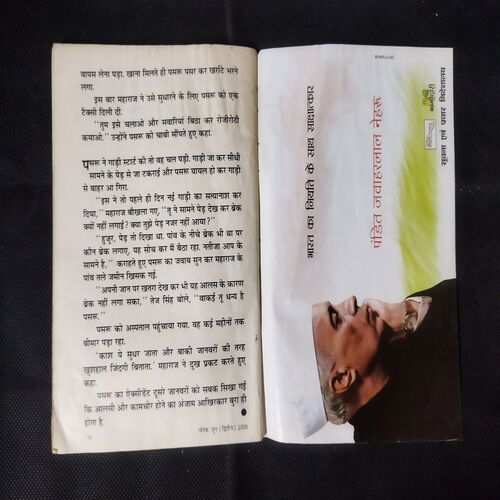 वापस लेना पड़ा. खाना मिलते ही पसरू पसर कर खर्राटे भरने
लगा.
इस बार महाराज ने उसे सुधारने के लिए पसरू को एक
टैक्सी दिला दी.
"तुम इसे चलाओ और सवारियां बिठा कर रोजीरोटी
कमाओ." उन्होंने पसरू को चाबी सौंपते हुए कहा.
पसरू ने गाड़ी स्टार्ट की तो वह चल पड़ी. गाड़ी जा कर सीधी
सामने के पेड़ से जा टकराई और पसरू घायल हो कर गाड़ी
से बाहर आ गिरा.
"इस ने तो पहले ही दिन नई गाड़ी का सत्यानाश कर
दिया," महाराज बौखला गए, "तू ने सामने पेड़ देख कर ब्रेक
क्यों नहीं लगाई? क्या तुझे पेड़ नजर नहीं आया?"
"हुजूर, पेड़ तो दिखा था. पांव के नीचे ब्रेक भी था पर
कौन ब्रेक लगाए, यह सोच कर मैं बैठा रहा. नतीजा आप के
सामने है," कराहते हुए पसरू का जवाब सुन कर महाराज के
पांव तले जमीन खिसक गई.
"अपनी जान पर खतरा देख कर भी यह आलस के कारण
ब्रेक नहीं लगा सका," तेज सिंह बोले, "वाकई तू धन्य है
पसरू."
पसरू को अस्पताल पहुंचाया गया. वह कई महीनों तक
बीमार पड़ा रहा.
'काश ये सुधर जाता और बाकी जानवरों की तरह
खुशहाल जिंदगी बिताता.' महाराज ने दुख प्रकट करते हुए
कहा.
पसरू का ऐक्सीडेंट दूसरे जानवरों को सबक सिखा गई
कि आलसी और कामचोर होने का अंजाम आखिरकार बुरा ही
होता है.
चंपक जून (द्वितीय) 2006
भारत का नियति के साथ साक्षात्कार
पंडित जवाहरलाल नेहरू
सूचना एवं प्रचार निदेशालय